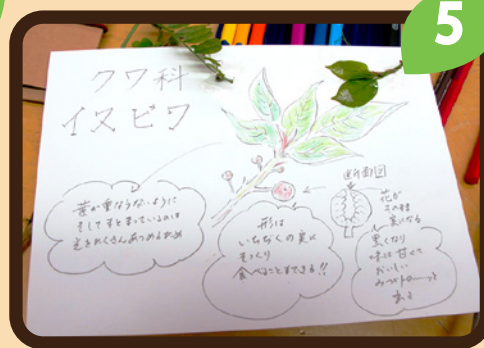 5
クワ科
イヌビワ
葉が重ならないように
そしてまとまっているのは
光をたくさんあつめるため
形は
いちぢくの実に
そっくり
食べることもできる!!
断面図
花が
そのまま
実になる
黒くなり
味は甘くて
おいしい
ある